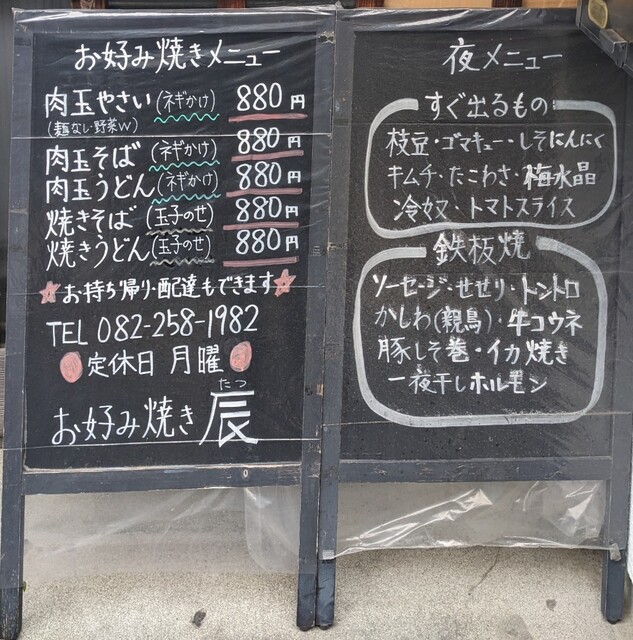 お好み焼きメニュー
肉玉やさい(ネギかけ) 880円
(麺なし・野菜W)
肉玉そば(ネギかけ) 880円
肉玉うどん(ネギかけ) 880円
焼きそば(玉子のせ) 880円
焼きうどん(玉子のせ) 880円
★お持ち帰り・配達もできます★
TEL 082-258-1982
定休日 月曜
たつ
お好み焼き 辰
夜メニュー
すぐ出るもの
枝豆・ゴマキュー・しそにんにく
キムチ・たこわさ・梅水晶
冷奴・トマトスライス
鉄板焼
ソーセージ・せせり・トントロ
かしわ(親鳥)・牛コウネ
豚しそ巻・イカ焼き
一夜干しホルモン